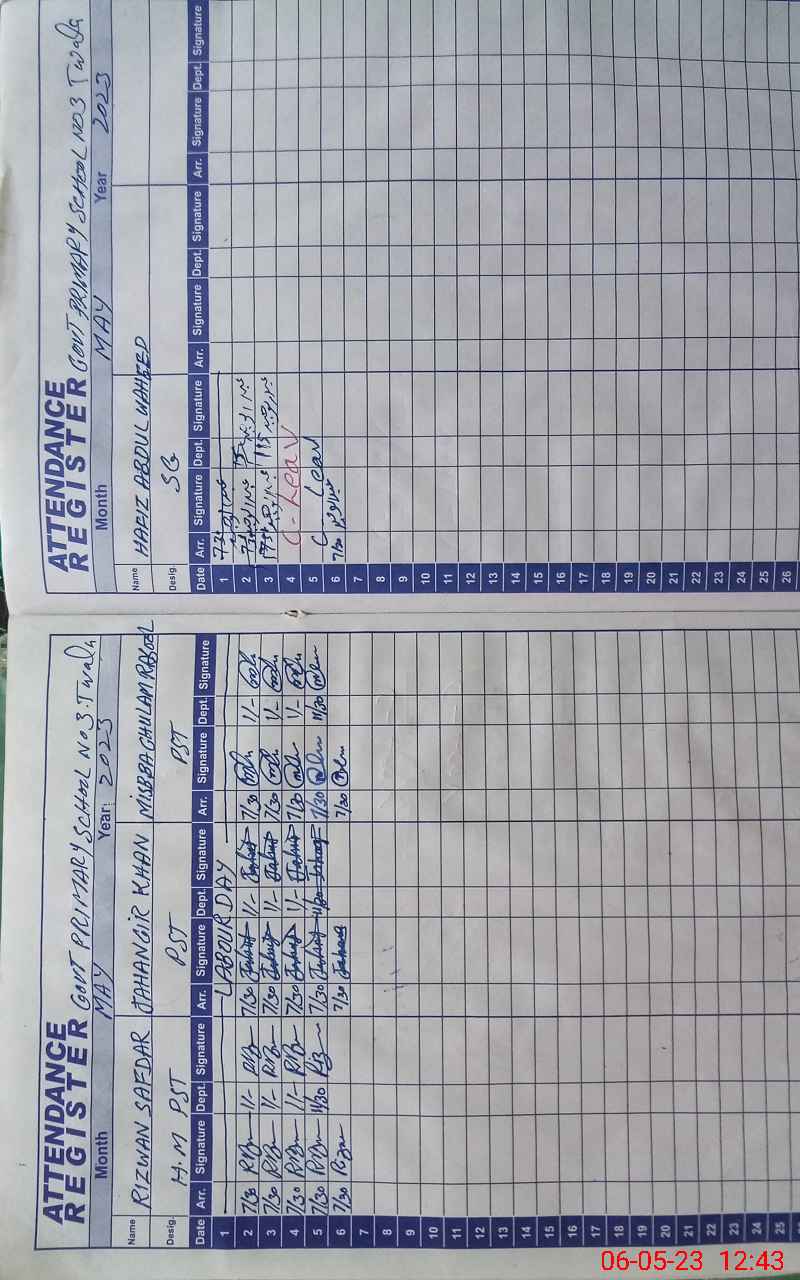 ATTENDANCE
REGISTER GOVT PRIMARY SCHOOL NO 3 Twala
Month MAY Year 2023
Name RIZWAN SAFDAR JAHANGIR KHAN MISBBA GHULAM RASOOL
Desig. H.M PST PST PST
Date Arr. Signature Dept. Signature Arr. Signature Dept. Signature Arr. Signature Dept. Signature
1 LABOUR DAY
2 7/30 1/- 7/30 1/- 7/30 1/-
3 7/30 1/- 7/30 1/- 7/30 1/-
4 7/30 1/- 7/30 1/- 7/30 1/-
5 7/30 11/30 7/30 11/30 7/30 11/30
6 7/30 7/30 7/30
7
8
9
10
11
12
13
14
15
16
17
18
19
20
21
22
23
24
25
ATTENDANCE
REGISTER GOVT PRIMARY SCHOOL NO 3 Twala
Month MAY Year 2023
Name HAFIZ ABDUL WAHEED
Desig. SQ
Date Arr. Signature Dept. Signature Arr. Signature Dept. Signature Arr. Signature Dept. Signature
1
2
3
4 C-Leav
5 C Leav
6 7/30
7
8
9
10
11
12
13
14
15
16
17
18
19
20
21
22
23
24
25
26
06-05-23 12:43